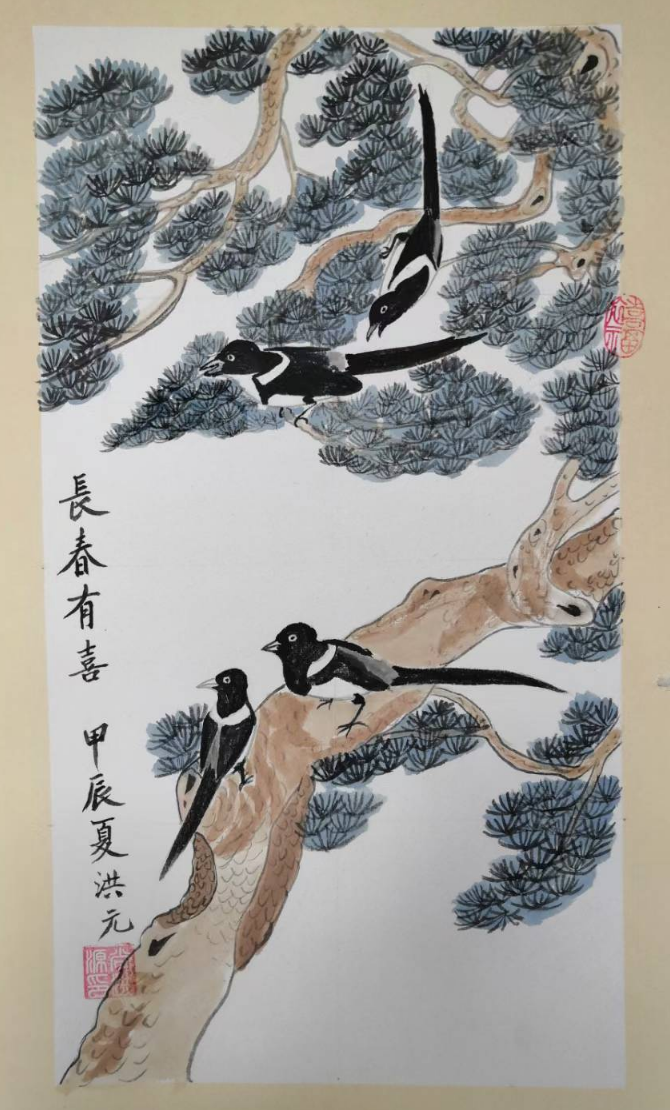 長春有喜 甲辰夏洪元